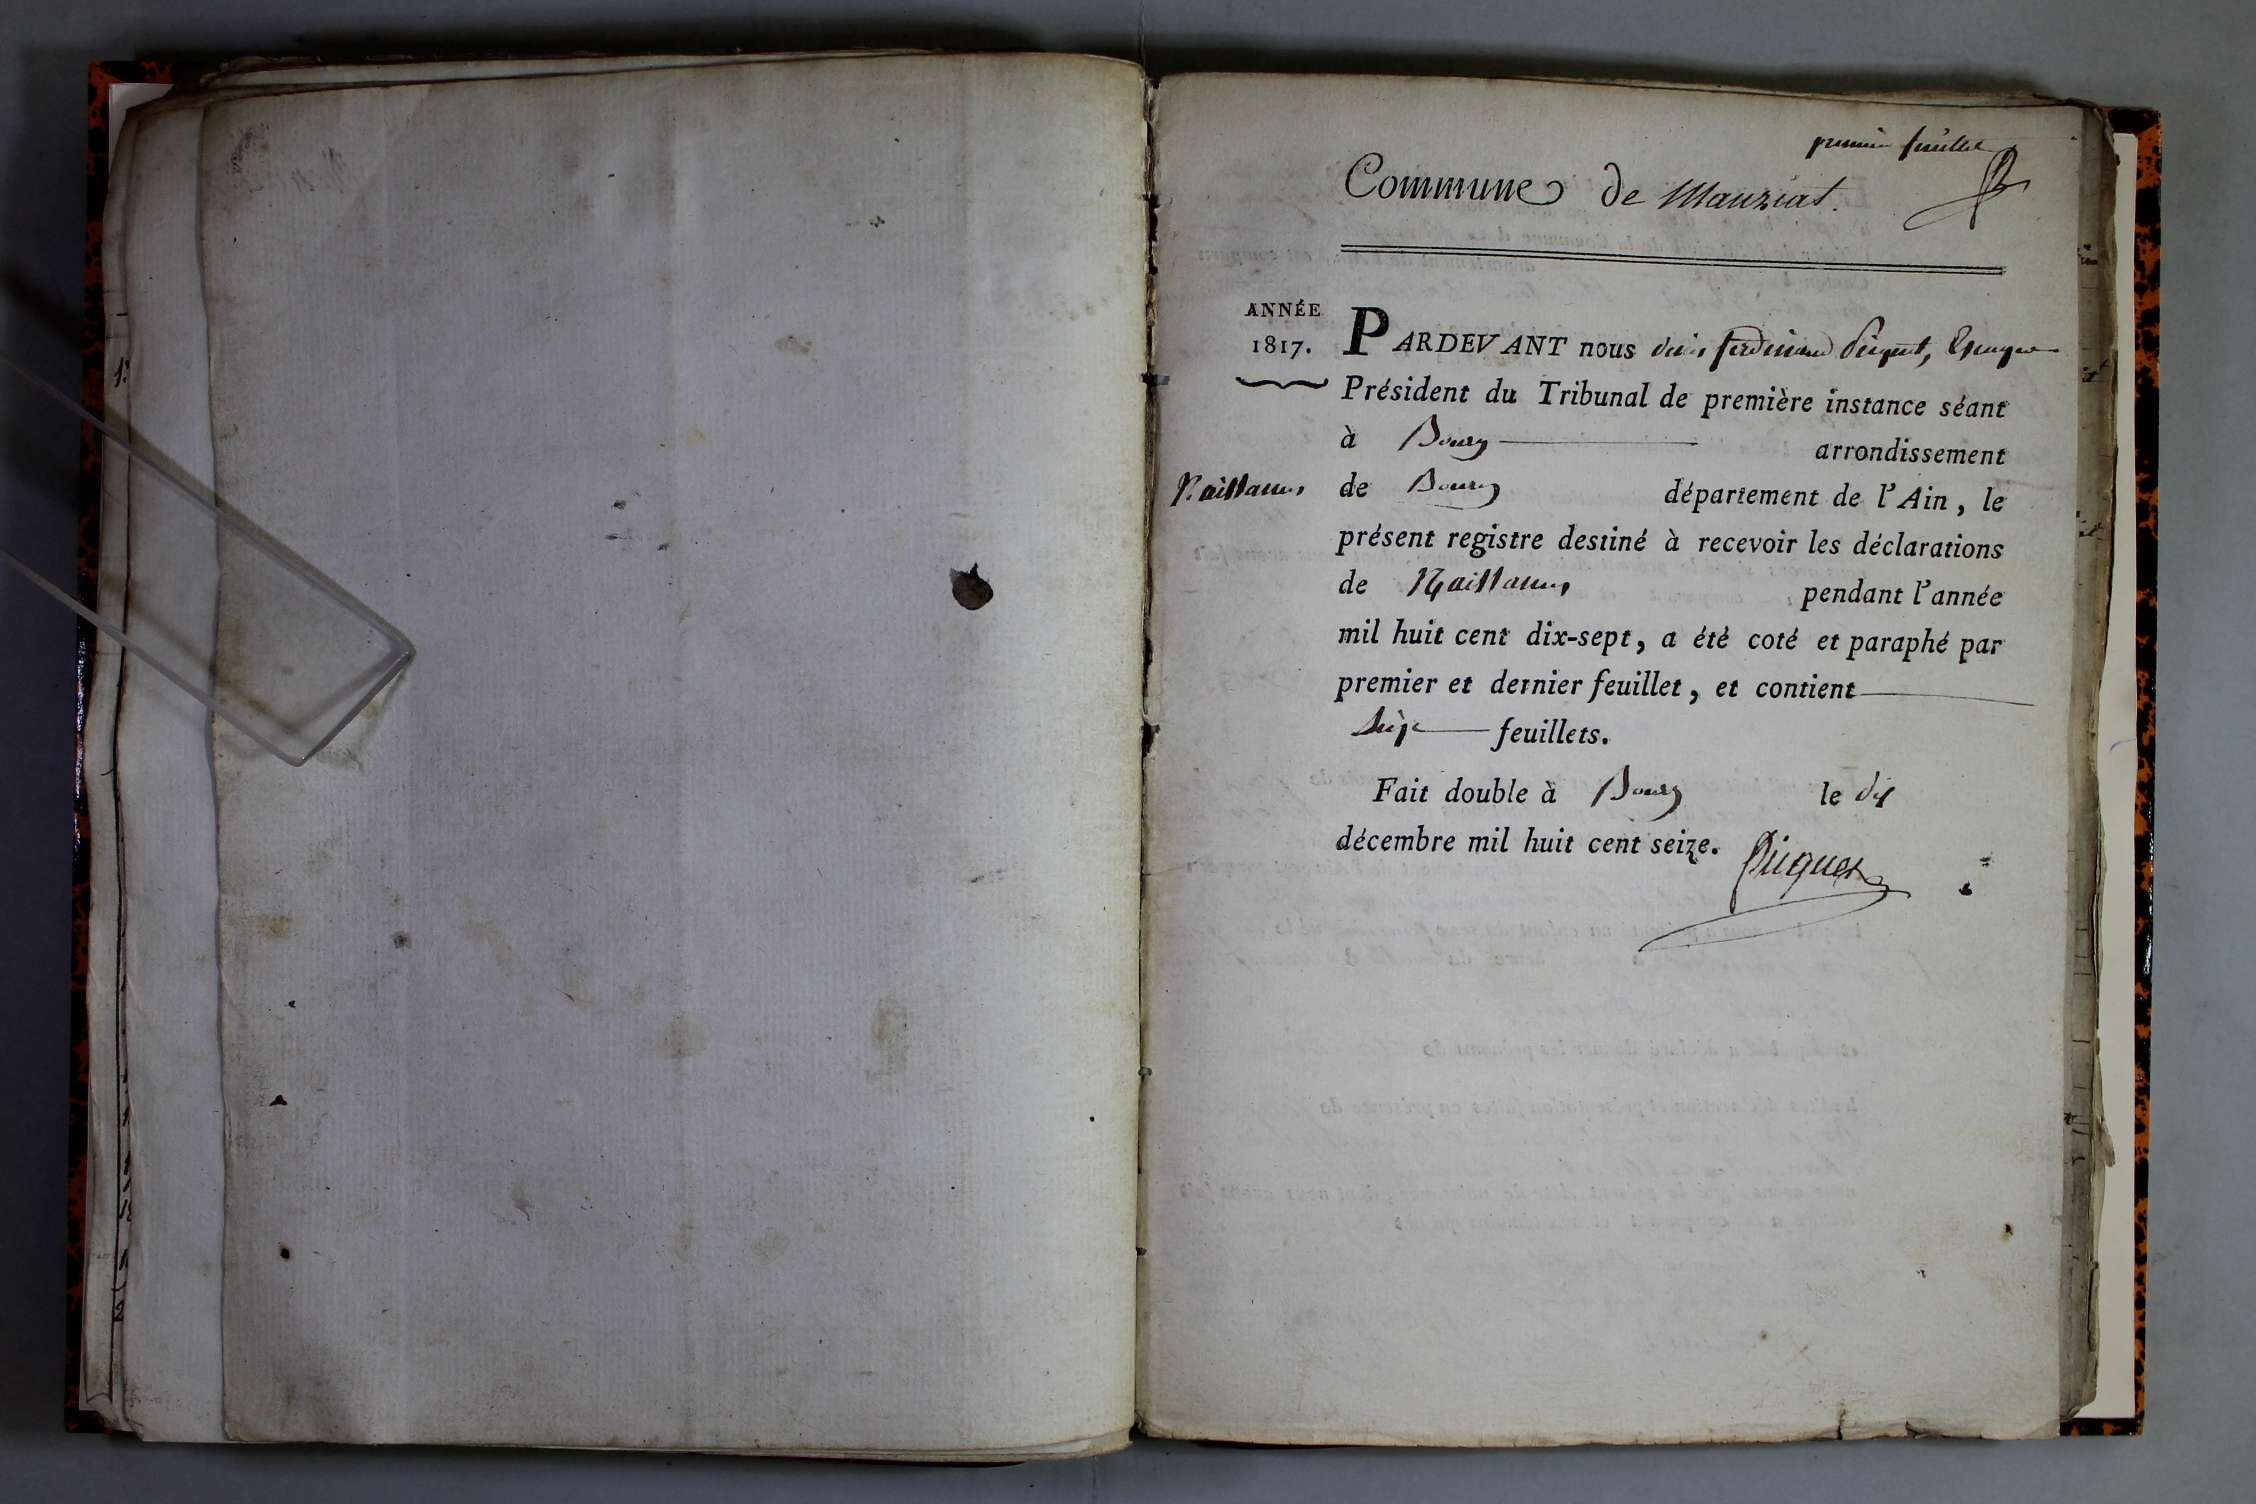 premier feuillet
Commune de Manziat.
ANNÉE
1817.
PARDEVANT nous Ferdinand Piquet,
Président du Tribunal de première instance séant
à Bourg arrondissement
Naissances
de Bourg département de l'Ain, le
présent registre destiné à recevoir les déclarations
de Naissances pendant l'année
mil huit cent dix-sept, a été coté et paraphé par
premier et dernier feuillet, et contient
seize feuillets.
Fait double à Bourg le dix
décembre mil huit cent seize.
Piquet